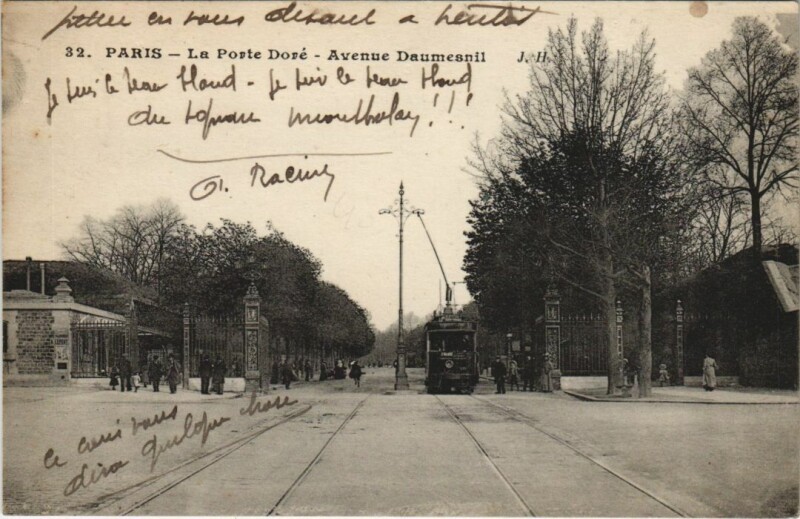 en vous disant a bientôt
32. PARIS – La Porte Doré - Avenue Daumesnil J. H.
Je suis le beau blond - Je suis le beau blond
du square Montholon !!!
Racine
ce vous
dira quelque chose